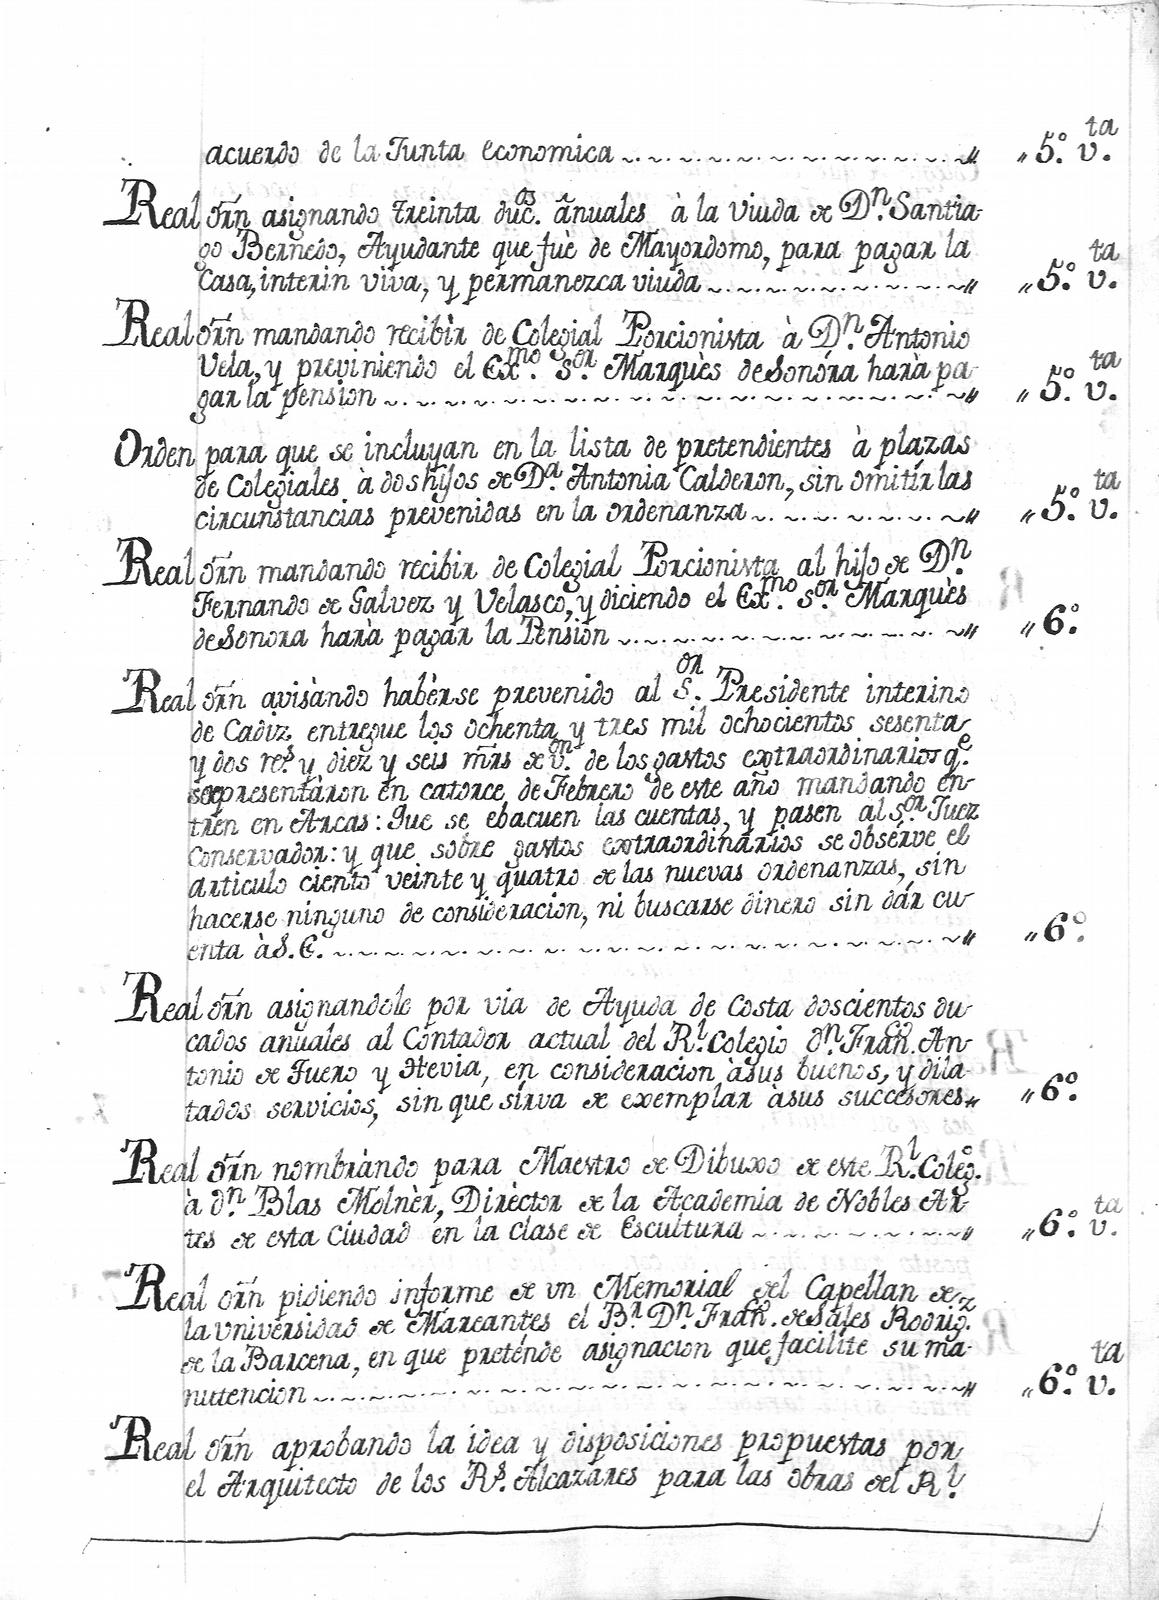 acuerdo de la Junta economica „ 5º. v.ta
Real orñ asignando treinta duc.os anuales à la viuda de D.n Santia-
go Bernedo, Ayudante que fuè de Mayordomo, para pagar la
Casa, interin viva, y permanezca viuda „ 5º. v.ta
Real orñ mandando recibìr de Colegial Porcionista à D.n Antonio
Vela, y previniendo el Ex.mo S.or Marquès de Sonora harà pa-
gar la pension „ 5º. v.ta
Orden para que se incluyan en la lista de pretendientes à plazas
de Colegiales à dos hijos de D.a Antonia Calderon, sin omitir las
circunstancias prevenidas en la ordenanza „ 5º. v.ta
Real orñ mandando recibir de Colegial Porcionista al hijo de D.n
Fernando de Galvez y Velasco, y diciendo el Ex.mo S.or Marquès
de Sonora harà pagar la Pension „ 6º.
Real orñ avisàndo habèrse prevenido al S.or Presidente interino
de Cadiz entregue los ochenta y tres mil ochocientos sesenta
y dos re.s y diez y seis mrs de v.on de los gastos extraordinarios q.e
se representàron en catorce de Febrero de este año mandando en-
tren en Arcas: que se ebacuen las cuentas, y pasen al S.or Juez
Conservador: y que sobre gastos extraordinarios se obsèrve el
articulo ciento veinte y quatro de las nuevas ordenanzas, sin
hacerse ninguno de consideracion, ni buscarse dinero sin dár cu-
enta à S. E. „ 6º.
Real orñ asignandole por via de Ayuda de Costa doscientos du-
cados anuales al Contador actual del R.l Colegio d.n Fran.co An-
tonio de Fuero y Hevia, en consideracion à sus buenos, y dila-
tados servicios, sin que sirva de exemplar à sus succesores „ 6º.
Real orñ nombràndo para Maestro de Dibuxo de este R.l Coleg.o
à d.n Blas Molnèr, Dirèctor de la Academia de Nobles Ar-
tes de esta Ciudad en la clase de Escultura „ 6º. v.ta
Real orñ pidiendo informe de vn Memorial del Capellan de
la Vniversidad de Mareantes el B.r D.n Fran.co de Sales Rodrig.z
de la Barcena, en que pretende asignacion que facilite su ma-
nutencion „ 6º. v.ta
Real orñ aprobando la idea y disposiciones propuestas por
el Arquitecto de los R.s Alcazares para las obras del R.l